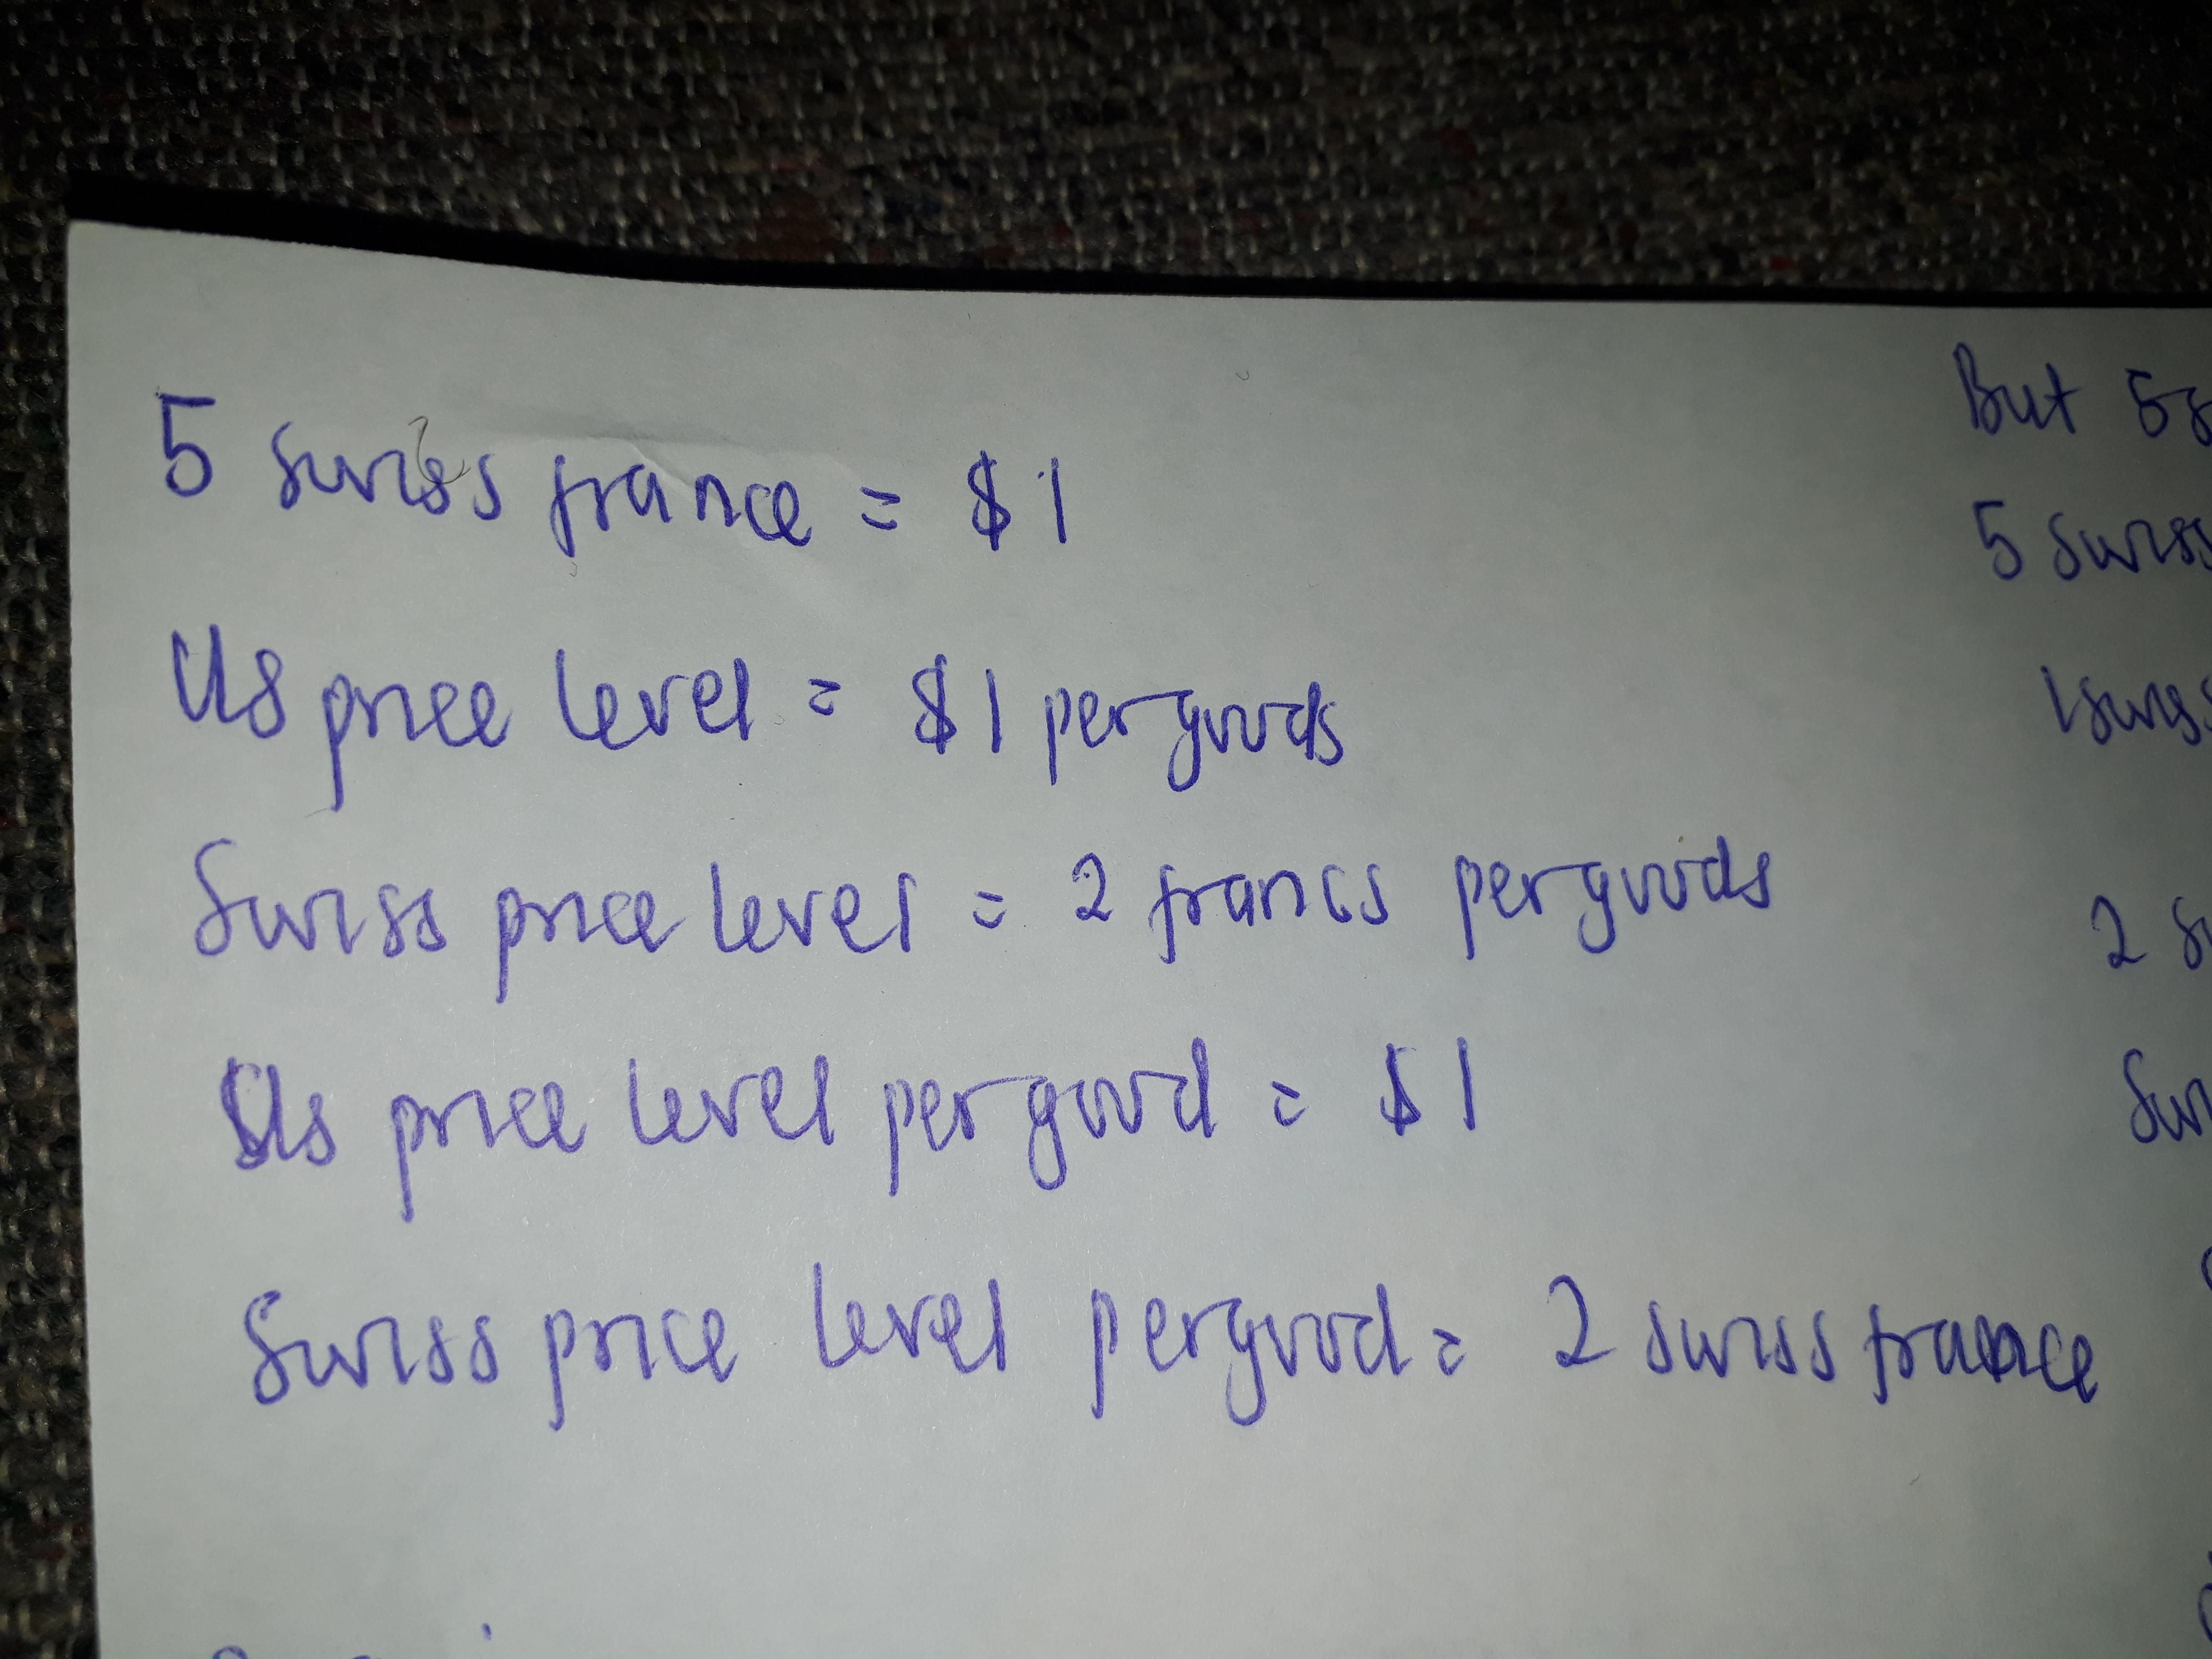 5 swiss france = $1
Us price level = $1 per goods
Swiss price level = 2 francs per goods
Us price level per good = $1
Swiss price level per good = 2 swiss france
But
5 swiss
1 swiss
2